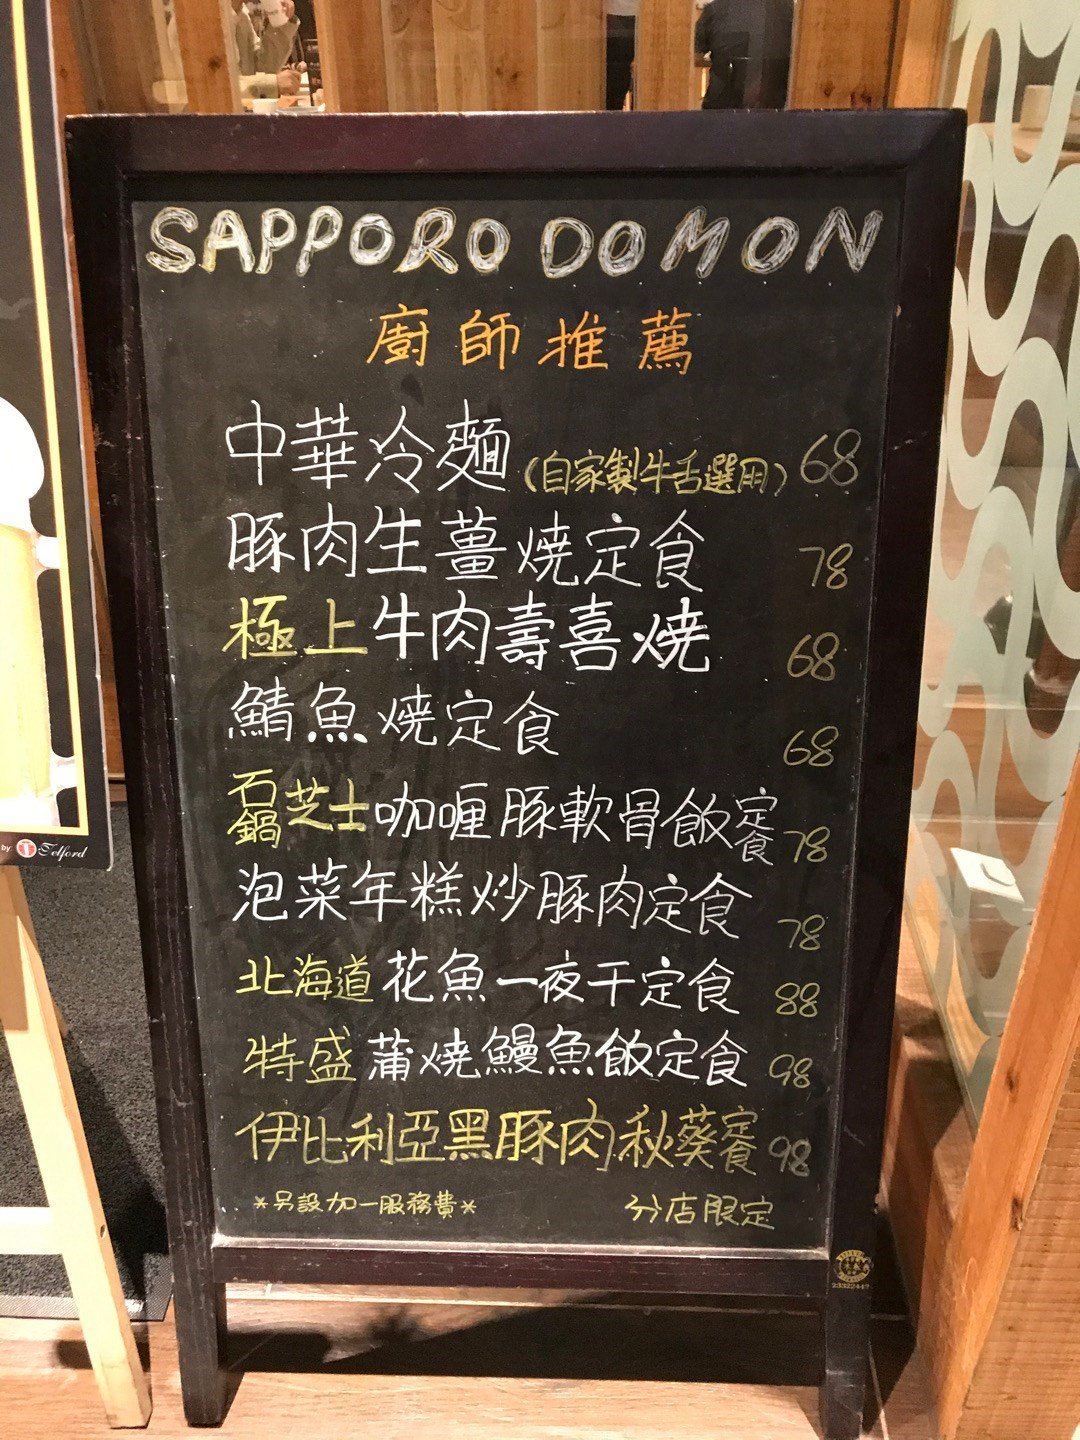 SAPPORO DOMON
廚師推薦
中華冷麵(自家製牛舌選用) 68
豚肉生薑燒定食 78
極上牛肉壽喜燒 68
鯖魚燒定食 68
石鍋芝士咖喱豚軟骨飯定食 78
泡菜年糕炒豚肉定食 78
北海道花魚一夜干定食 88
特盛蒲燒鰻魚飯定食 98
伊比利亞黑豚肉秋葵定食 98
*另設加一服務費* 分店限定
by: Telford
23322447